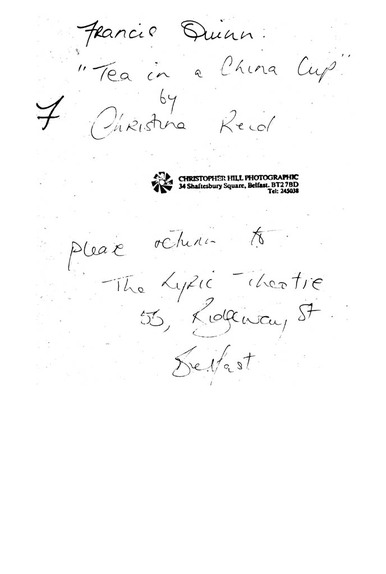 Francis Quinn.
"Tea in a China Cup"
by
7
Christina Reid
CHRISTOPHER HILL PHOTOGRAPHIC
34 Shaftesbury Square, Belfast. BT2 7BD
Tel: 245038
please return to
The Lyric Theatre
55, Ridgeway St
Belfast